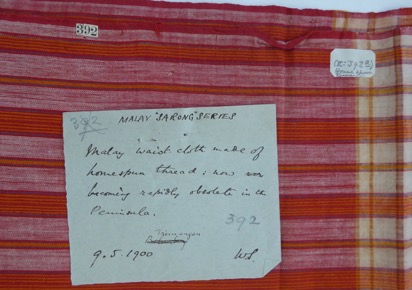 392
392
MALAY "SARONG" SERIES
Malay waist cloth made of
homespun thread; now
becoming rapidly obsolete in the
Peninsula.
392
9.5.1900
W.S.